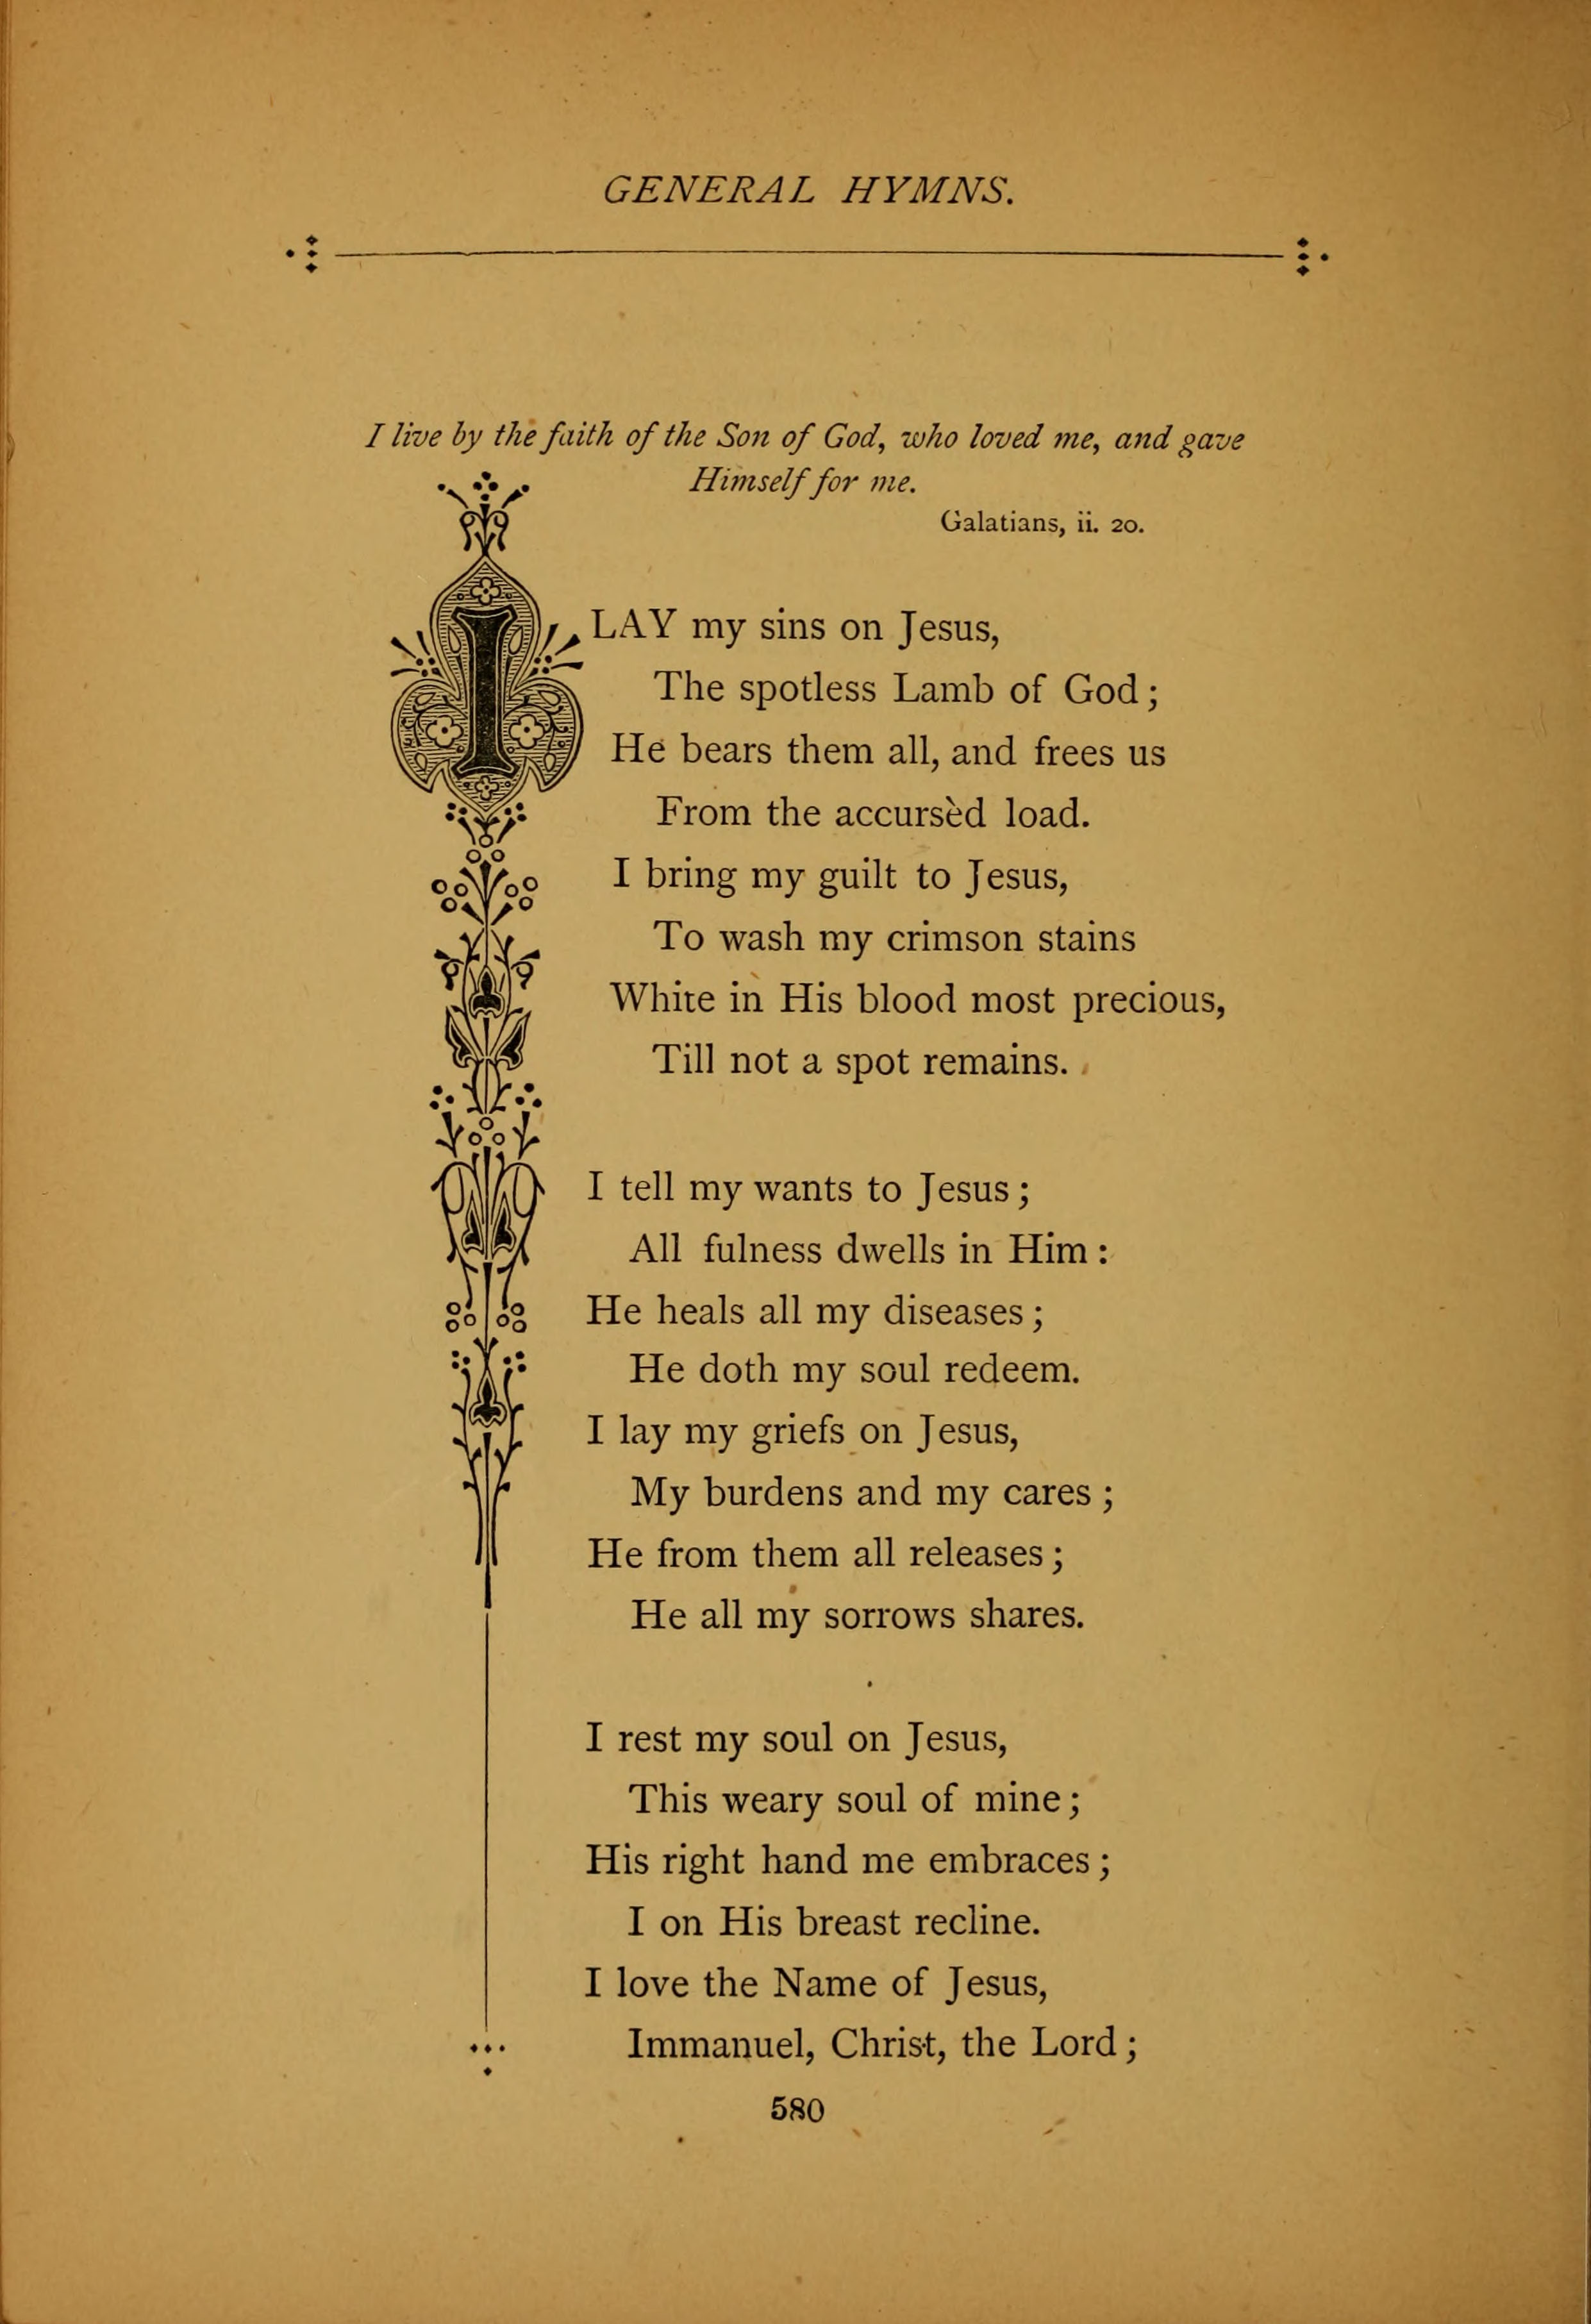 GENERAL HYMNS.
I live by the faith of the Son of God, who loved me, and gave
Himself for me.
Galatians, ii. 20.
I LAY my sins on Jesus,
The spotless Lamb of God;
He bears them all, and frees us
From the accursèd load.
I bring my guilt to Jesus,
To wash my crimson stains
White in His blood most precious,
Till not a spot remains.
I tell my wants to Jesus;
All fulness dwells in Him:
He heals all my diseases;
He doth my soul redeem.
I lay my griefs on Jesus,
My burdens and my cares;
He from them all releases;
He all my sorrows shares.
I rest my soul on Jesus,
This weary soul of mine;
His right hand me embraces;
I on His breast recline.
I love the Name of Jesus,
Immanuel, Christ, the Lord;
580